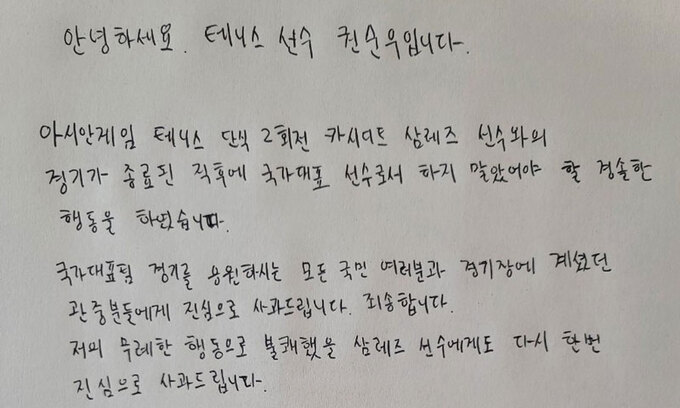 안녕하세요. 테니스 선수 권순우입니다.
아시안게임 테니스 단식 2회전 카시디트 삼레즈 선수와의
경기가 종료된 직후에 국가대표 선수로서 하지 말았어야 할 경솔한
행동을 하였습니다.
국가대표팀 경기를 응원하시는 모든 국민 여러분과 경기장에 계셨던
관중분들에게 진심으로 사과드립니다. 죄송합니다.
저의 무례한 행동으로 불쾌했을 삼레즈 선수에게도 다시 한번
진심으로 사과드립니다.